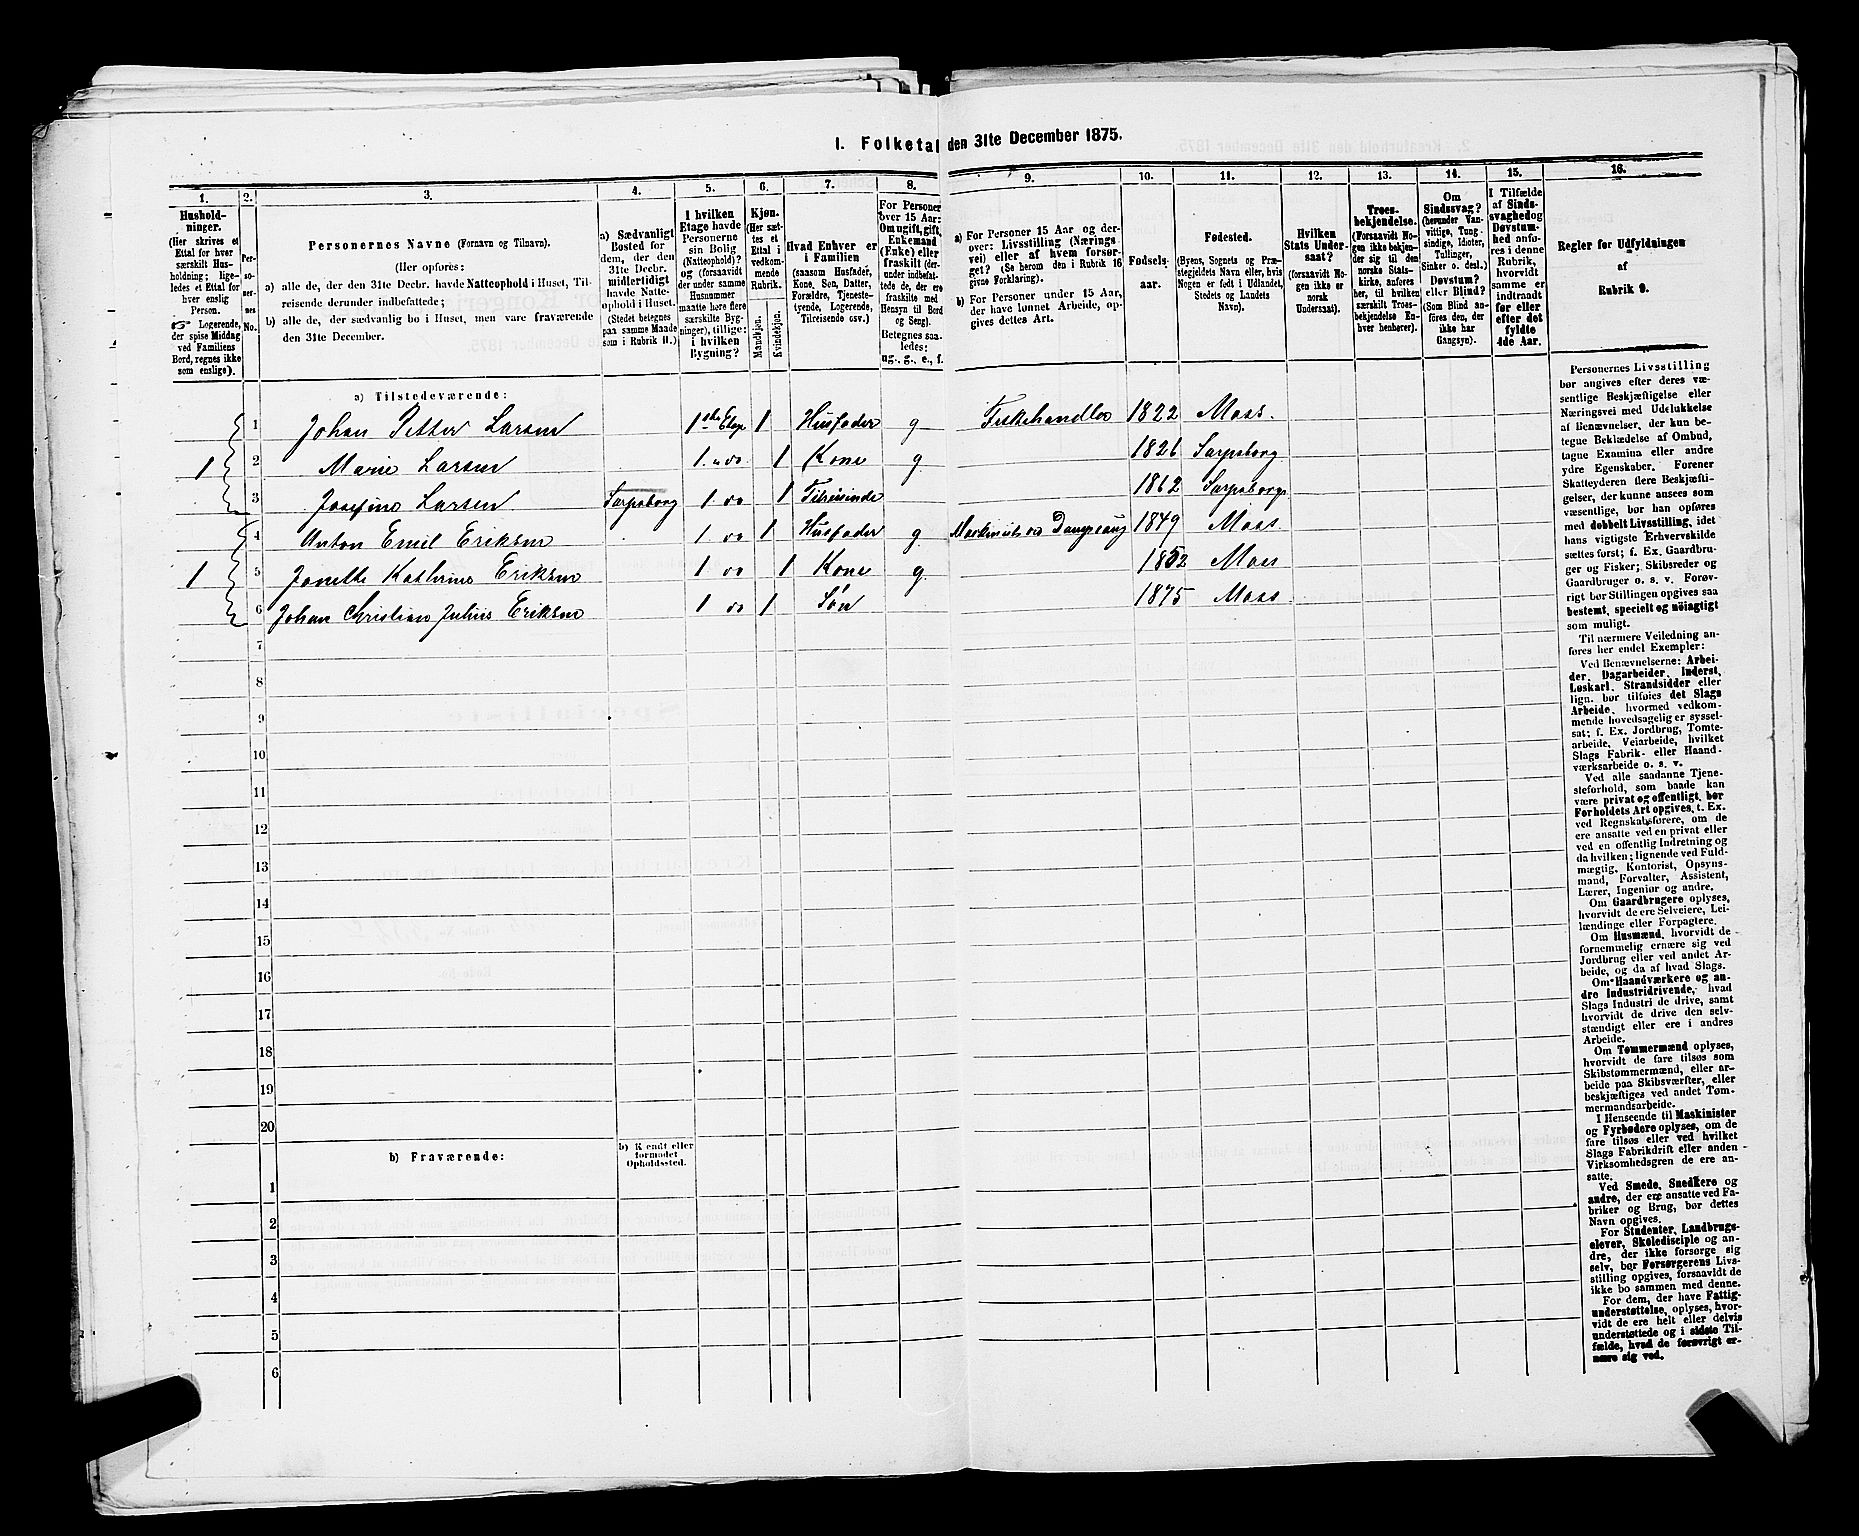 I. Folketal den 31te December 1875.
1. 2. 3. 4. 5. 6. 7. 8. 9. 10. 11. 12. 13. 14. 15. 16.
Hushold-
ninger.
(Her skrives et
Ettal for hver
særskilt Hus-
holdning; lige-
ledes et Ettal for
hver enslig
Person.
Logerende,
der spise Middag
ved Familiens
Bord, regnes ikke
som enslige).
Per-
so-
ner-
nes
No.
Personernes Navne (Fornavn og Tilnavn).
(Her opføres:
a) alle de, der den 31te Decbr. havde Natteophold i Huset, Til-
reisende derunder indbefattede;
b) alle de, der sædvanlig bo i Huset, men vare fraværende
den 31te December.
a) Sædvanligt
Bosted for
dem, der den
31te Decbr.
midlertidigt
havde Natte-
ophold i Huset.
(Stedet betegnes
paa samme Maade
som i Rubrik 11.)
I hvilken
Etage havde
Personerne
sin Bolig
(Natteophold)?
og (forsaavidt
der under samme
Husnummer
maatte høre flere
særskilte Byg-
ninger), tillige:
i hvilken
Bygning?
Kjøn.
(Her sæt-
tes et
Ettal i
vedkom-
mende
Rubrik.)
Mandkjøn.
Kvindekjøn.
Hvad Enhver er
i Familien
(saasom Husfader,
Kone, Søn, Datter,
Forældre, Tjeneste-
tyende, Logerende,
Tilreisende osv.)
For Personer
over 15 Aar:
Om ugift, gift,
Enkemand
(Enke) eller
fraskilt (der-
under indbefat-
tede de, der ere
fraskilte med
Hensyn til Bord
og Seng).
Betegnes saa-
ledes:
ug., g., e., f.
a) For Personer 15 Aar og der-
over: Livsstilling (Nærings-
vei) eller af hvem forsør-
get? (Se herom den i Rubrik 16
givne Forklaring).
b) For Personer under 15 Aar,
der have lønnet Arbeide, op-
gives dettes Art.
Fødsels-
aar.
Fødested.
(Byens, Sognets og Præ-
stegjeldets Navn eller, hvis
Nogen er født i Udlandet,
Stedets og Landets
Navn).
Hvilken
Stats Under-
saat?
(forsaavidt No-
gen ikke er
norsk
Undersaat).
Troes-
bekjendelse.
(Forsaavidt No-
gen ikke bekjen-
der sig til den
norske Stats-
kirke, anføres
her, til hvilken
særskilt Troes-
bekjendelse En-
hver henhører).
Om
Sindssvag?
(herunder Van-
vittige, Tung-
sindige, Idioter,
Tullinger,
Sinker o. desl.)
Døvstum?
eller Blind?
(Som Blind an-
føres den, der
ikke har
Gangsyn).
I Tilfælde
af Sinds-
svaghed og
Døvstum-
hed anfø-
res i denne
Rubrik,
hvorvidt
samme er
indtraadt
før eller
efter det
fyldte
4de Aar.
Regler for Udfyldningen
af
Rubrik 9.
a) Tilstedeværende:
1 Johan Petter Larsen 1ste Etage 1 Husfader g Fiskehandler 1822 Moss.
1 2 Marie Larsen 1. " do 1 Kone g 1826 Sarpsborg
3 Josefine Larsen Sarpsborg 1 do 1 Tilreisinde 1862 Sarpsborg
4 Anton Emil Eriksen 1 do 1 Husfader g. Maskinist ved Dampsaug 1849 Moss.
1 5 Janette Kathrine Eriksen 1 do 1 Kone g. 1852 Moss
6 Johan Christian Julius Eriksen 1 do 1 Søn 1875 Moss.
7
8
9
10
11
12
13
14
15
16
17
18
19
20
b) Fraværende:
b) Kjendt eller
formodet
Opholdssted.
1
2
3
4
5
6
Personernes Livsstilling
bør angives efter deres væ-
sentlige Beskjæftigelse eller
Næringsvei med Udelukkelse
af Benævnelser, der kun be-
tegne Beklædelse af Ombud,
tagne Examina eller andre
ydre Egenskaber. Forener
Skatteyderen flere Beskjæfti-
gelser, der kunne ansees som
væsentlige, bør han opføres
med dobbelt Livsstilling, idet
hans vigtigste Erhvervskilde
sættes først; f. Ex. Gaardbru-
ger og Fisker; Skibsreder og
Gaardbruger o. s. v. Forøv-
rigt bør Stillingen opgives saa
bestemt, specielt og nøiagtigt
som muligt.
Til nærmere Veiledning an-
føres her endel Exempler:
Ved Benævnelserne: Arbei-
der, Dagarbeider, Inderst,
Løskarl, Strandsidder eller
lign. bør tilføies det Slags
Arbeide, hvormed vedkom-
mende hovedsagelig er syssel-
sat; f. Ex. Jordbrug, Tomte-
arbeide, Veiarbeide, hvilket
Slags Fabrik- eller Haand-
værksarbeide o. s. v.
Ved alle saadanne Tjene-
steforhold, som baade kan
være privat og offentligt, bør
Forholdets Art opgives, t. Ex.
ved Regnskabsførere, om de
ere ansatte ved en privat eller
ved en offentlig Indretning og
da hvilken; lignende ved Fuld-
mægtig, Kontorist, Opsyns-
mand, Forvalter, Assistent,
Lærer, Ingeniør og andre.
Om Gaardbrugere oplyses,
hvorvidt de ere Selveiere, Lei-
lændinge eller Forpagtere.
Om Husmænd, hvorvidt de
fornemmelig ernære sig ved
Jordbrug eller ved andet Ar-
beide, og da af hvad Slags.
Om Haandværkere og an-
dre Industridrivende, hvad
Slags Industri de drive, samt
hvorvidt de drive den selv-
stændigt eller ere i andres
Arbeide.
Om Tømmermænd oplyses,
hvorvidt de fare tilsøs som
Skibstømmermænd, eller ar-
beide paa Skibsværfter, eller
beskjæftiges ved andet Tøm-
mermandsarbeide.
I Henseende til Maskinister
og Fyrbødere oplyses, om de
fare tilsøs eller ved hvilket
Slags Fabrikdrift eller anden
Virksomhedsgren de ere an-
satte.
Ved Smede, Snedkere og
andre, der ere ansatte ved Fa-
briker og Brug, bør dettes
Navn opgives.
For Studenter, Landbrugs-
elever, Skoledisciple og an-
dre, der ikke forsørge sig
selv, bør Forsørgerens Livs-
stilling opgives, forsaavidt de
ikke bo sammen med denne.
For dem, der have Fattig-
understøttelse, oplyses, hvor-
vidt de ere helt eller delvis
understøttede og i sidste Til-
fælde, hvad de forøvrigt er-
nære sig ved.